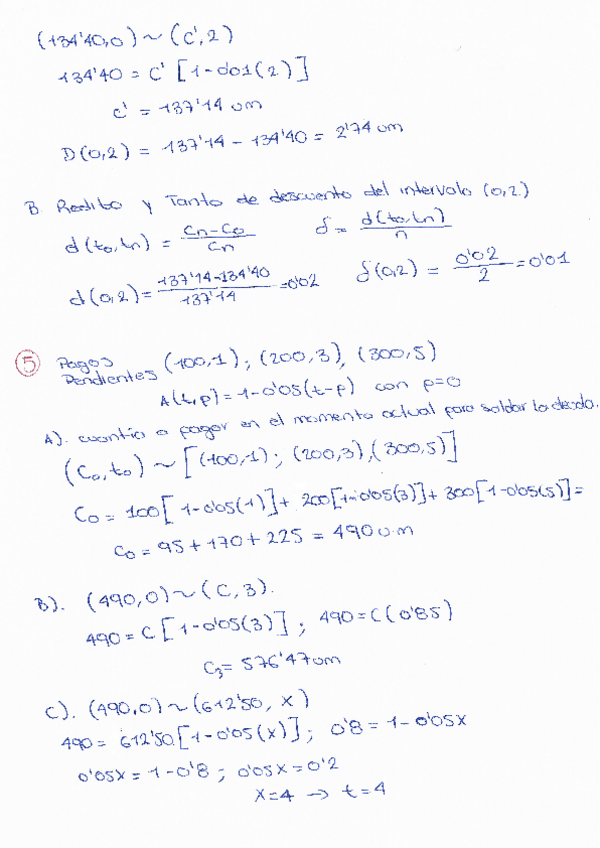 (134'40,0) ~ (C',2)
134'40 = C' [1-0'01(2)]
C' = 137'14 um
D(0,2) = 137'14 - 134'40 = 2'74 um
B Redito y Tanto de descuento del intervalo (0,2)
d(to,tn) = Cn-Co / Cn   δ = d(to,tn) / n
d(0,2) = 137'14-134'40 / 137'14 = 0'02   δ(0,2) = 0'02 / 2 = 0'01
5 Pagos Pendientes (100,1); (200,3), (300,5)
A(t,p) = 1-0'05(t-p) con p=0
A). cuantía a pagar en el momento actual para saldar la deuda.
(Co,to) ~ [(100,1); (200,3), (300,5)]
Co = 100[1-0'05(1)] + 200[1-0'05(3)] + 300[1-0'05(5)] =
Co = 95 + 170 + 225 = 490 u.m
B). (490,0) ~ (C,3).
490 = C[1-0'05(3)]; 490 = C(0'85)
C3 = 576'47 um
C). (490,0) ~ (612'50, x)
490 = 612'50[1-0'05(x)]; 0'8 = 1-0'05x
0'05x = 1-0'8; 0'05x = 0'2
x=4 → t=4